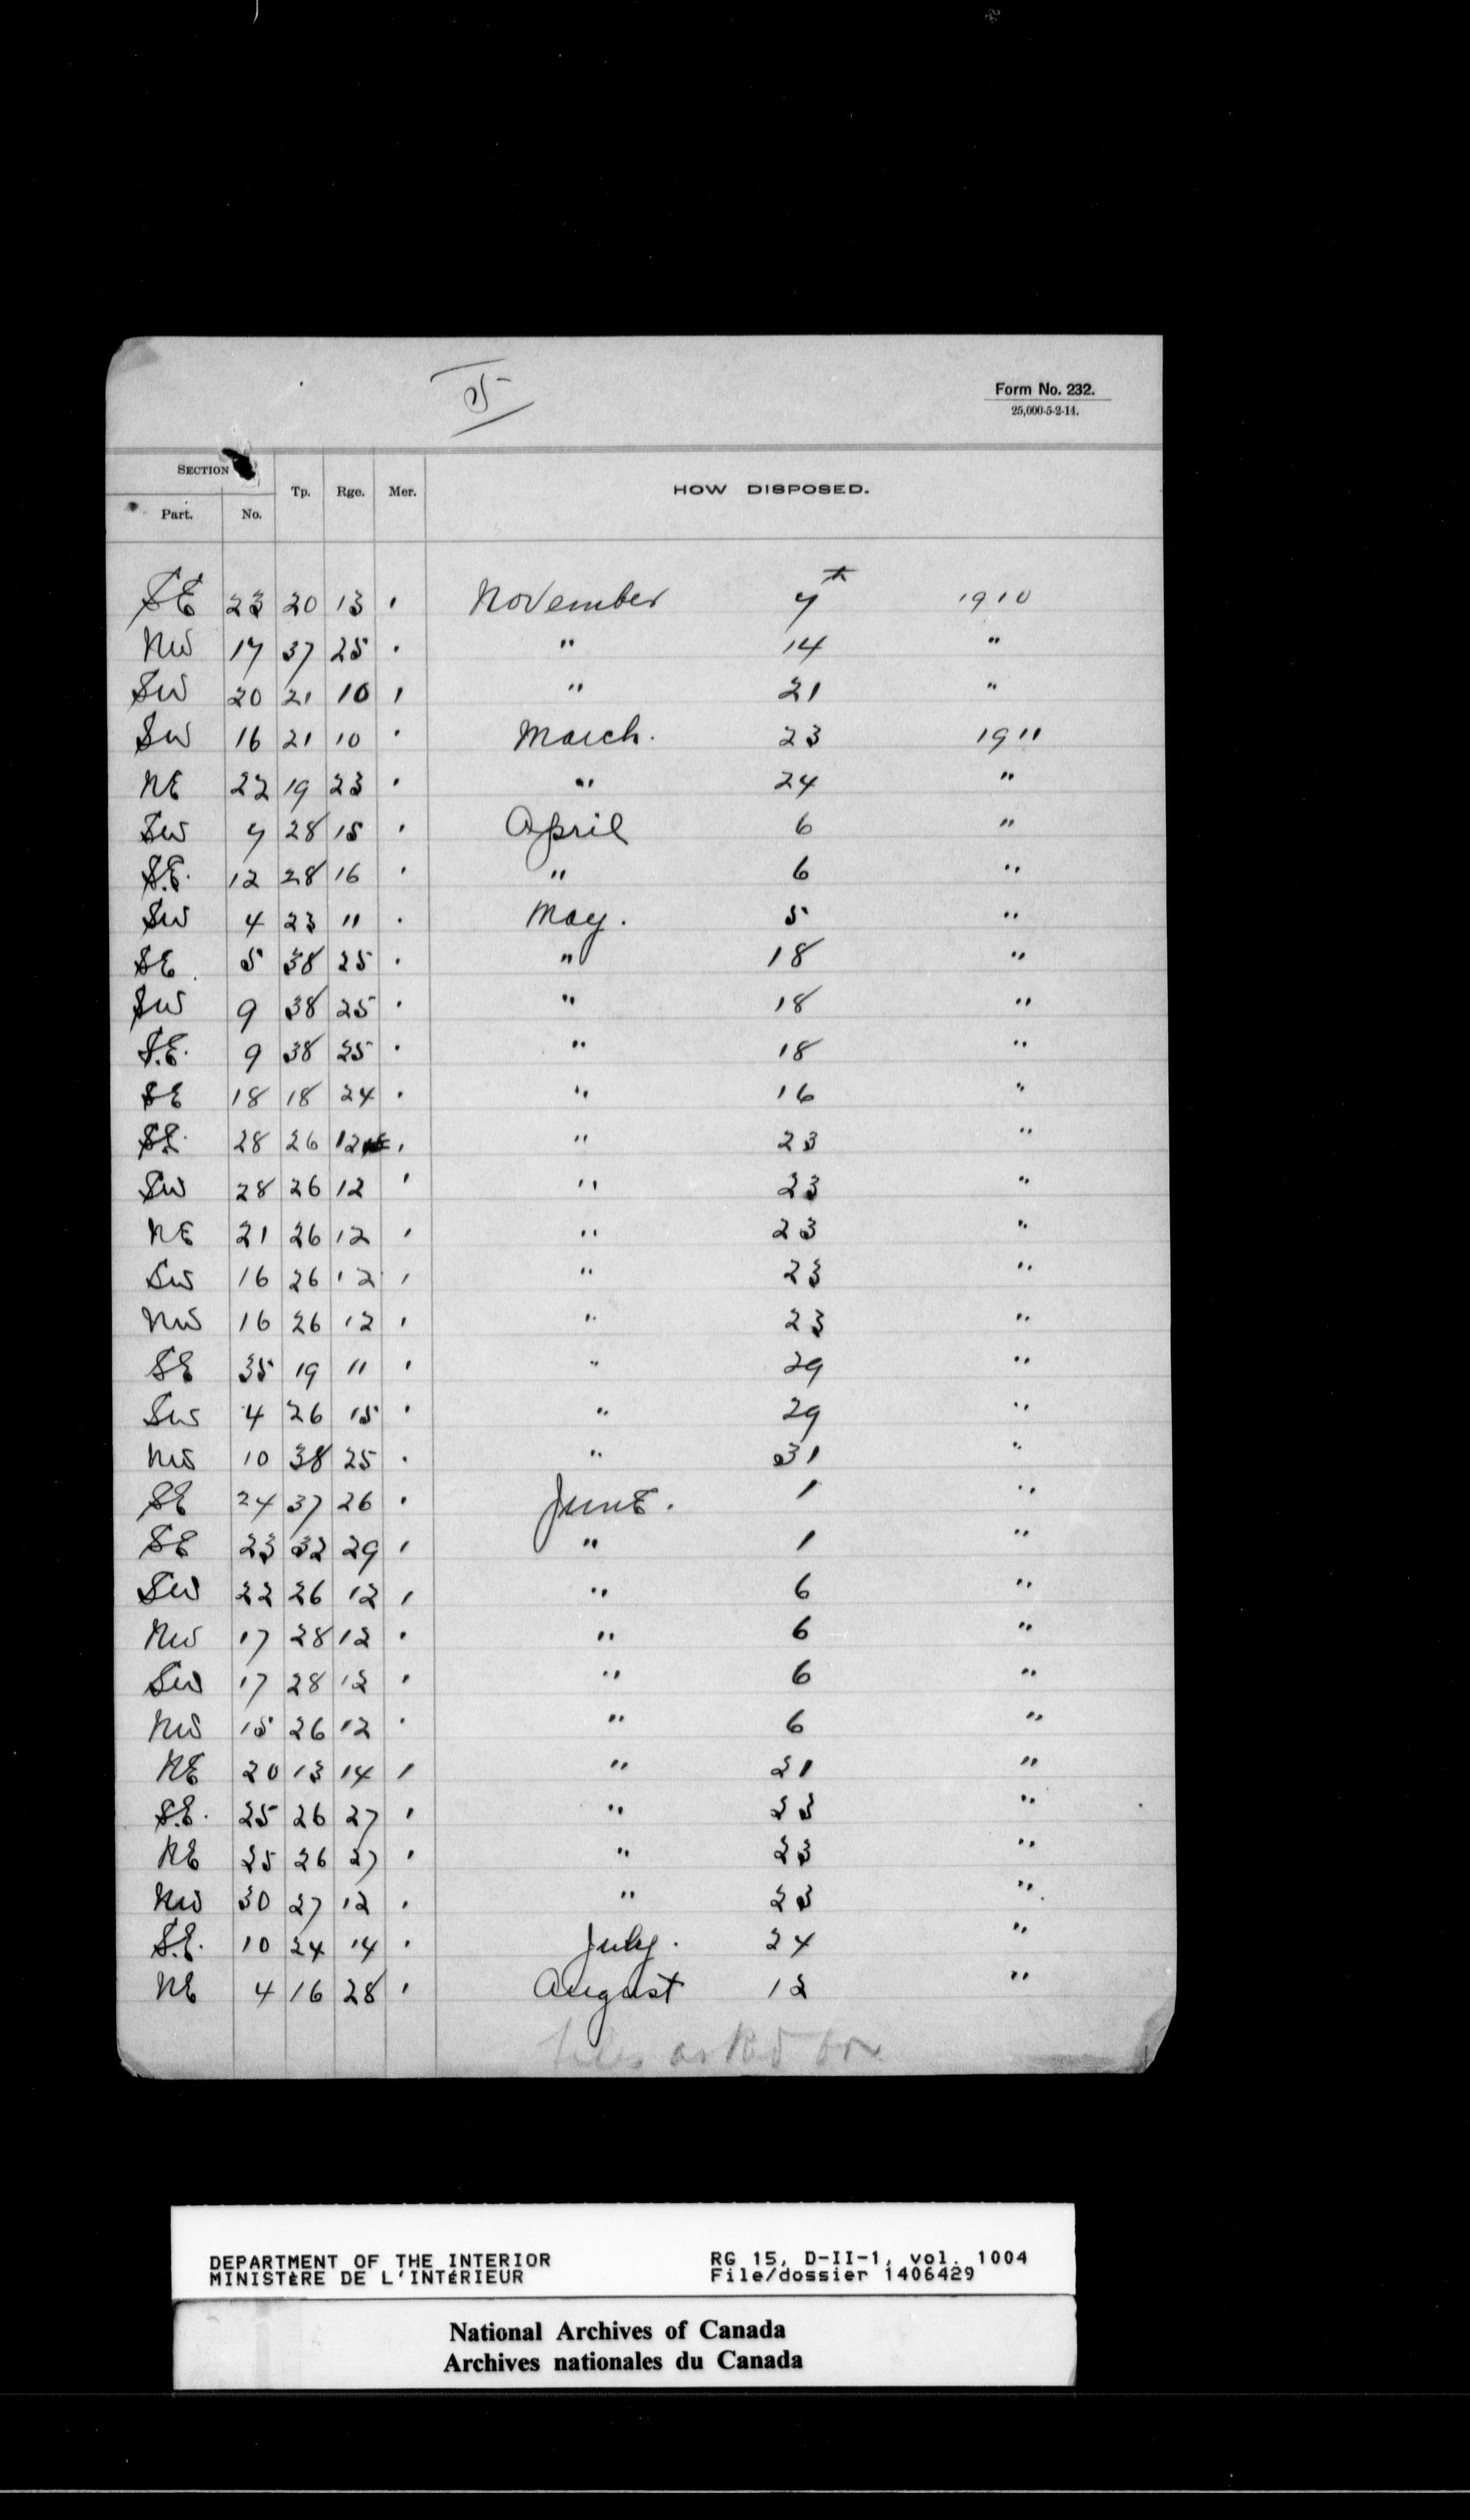 5
Form No. 232.
25,000-5-2-14.
SECTION Tp. Rge. Mer. HOW DISPOSED.
Part. No.
SE 23 20 13 ' November 7th 1910
NW 17 37 25 ' " 14 "
SW 20 21 10 ' " 21 "
SW 16 21 10 ' March. 23 1911
NE 22 19 23 ' " 24 "
SW 7 28 15 ' April 6 "
S.E. 12 28 16 ' " 6 "
SW 4 23 11 ' May. 5 "
SE. 5 38 25 ' " 18 "
SW 9 38 25 ' " 18 "
S.E. 9 38 25 ' " 18 "
SE 18 18 24 ' " 16 "
S.E. 28 26 12 ' " 23 "
SW 28 26 12 ' " 23 "
NE 21 26 12 ' " 23 "
SW 16 26 12 ' " 23 "
NW 16 26 12 ' " 23 "
SE 35 19 11 ' " 29 "
SW 4 26 15 ' " 29 "
NW 10 38 25 ' " 31 "
SE 24 37 26 ' June. 1 "
SE 23 32 29 ' " 1 "
SW 22 26 12 ' " 6 "
NW 17 28 12 ' " 6 "
SW 17 28 12 ' " 6 "
NW 15 26 12 ' " 6 "
NE 20 13 14 ' " 21 "
S.E. 25 26 27 ' " 23 "
NE 25 26 27 ' " 23 "
NW 30 27 12 ' " 23 "
S.E. 10 24 14 ' July. 24 "
NE 4 16 28 ' August 12 "
DEPARTMENT OF THE INTERIOR RG 15, D-II-1, vol. 1004
MINISTÈRE DE L'INTÉRIEUR File/dossier 1406429
National Archives of Canada
Archives nationales du Canada